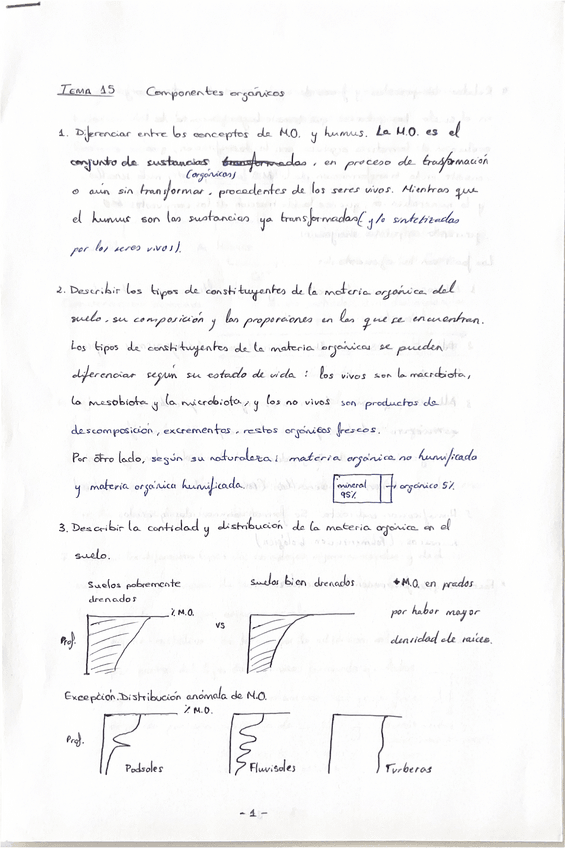 TEMA 15 Componentes orgánicos
1. Diferenciar entre los conceptos de M.O. y humus. La M.O. es el
conjunto de sustancias transformadas, en proceso de trasformación
(orgánicas)
o aún sin transformar, procedentes de los seres vivos. Mientras que
el humus son las sustancias ya transformadas (y/o sintetizadas
por los seres vivos).
2. Describir los tipos de constituyentes de la materia orgánica del
suelo, su composición y las proporciones en las que se encuentran.
Los tipos de constituyentes de la materia orgánicas se pueden
diferenciar según su estado de vida: los vivos son la macrobiota,
la mesobiota y la microbiota, y los no vivos son productos de
descomposición, excrementos, restos orgánicos frescos.
Por otro lado, según su naturaleza: materia orgánica no humificada
y materia orgánica humificada.
mineral
95%
→ orgánico 5%
3. Describir la cantidad y distribución de la materia orgánica en el
suelo.
Suelos pobremente
drenados
% M.O.
Prof.
vs
Suelos bien drenados
+M.O. en prados
por haber mayor
densidad de raíces.
Excepción. Distribución anómala de M.O.
% M.O.
Prof.
Podsoles
Fluvisoles
Turberas
- 1 -